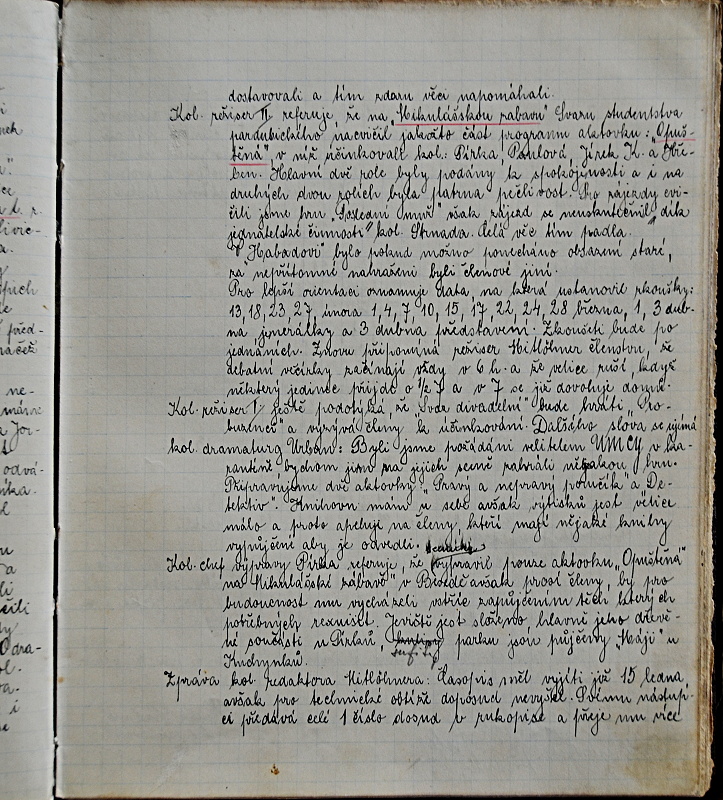 dostavovali a tím zdaru věci napomáhali.
Kol. režiser II. referuje, že na „Mikulášskou zabavu" Svazu studentstva
pardubického nacvičil jakožto část programu aktovku: „Opuš-
těná", v níž účinkovali kol.: Pírka, Pavlová, Jirek K. a Hře-
ben. Hlavní dvě role byly podány k spokojenosti a i na
druhých dvou rolích byla patrna pečlivost. Pro zájezdy cvi-
čili jsme hru „Poslední muž" však zájezd se neuskutečnil „dík
jednatelské činnosti" kol. Strnada. Celá věc tím padla.
V „Habadovi" bylo pokud možno ponecháno obsazení staré,
za nepřítomné nahraženi byli členové jiní.
Pro lepší orientaci oznamuje data, na která ustanovil zkoušky:
13, 18, 23, 27, února 1, 4, 7, 10, 15, 17, 22, 24, 28 března, 1, 3 dub-
na jenerálky a 3 dubna představení. Zkoušeti bude po
jednáních. Znovu připomíná režiser Mitlöhner členstvu, že
debatní večírky začínají vždy v 6 h. a že velice ruší, když
některý jedinec přijde o ½ 7 a v 7 se již dovoluje domů.
Kol. režiser I. ještě podotýká, že „Svaz divadelní" bude hráti „Pro-
buzenci" a vyzývá členy k účinkování. Dalšího slova se ujímá
kol. dramaturg Urban: Byli jsme požádáni velitelem YMCY v
bychom jim na jejich sceně zahráli nějakou hru.
Připravujeme dvě aktovky „Pravý a nepravý poručík" a „De-
tektiv". Knihovnu mám u sebe avšak výtisků jest velice
málo a proto apeluje na členy, kteří mají nějaké knihy
vypůjčené aby je odvedli.
Kol. chef výpravy Pírka referuje, že vypravil pouze aktovku „Opuštěná"
na „Mikulášské zábavě" v Besedě avšak prosí členy, by pro
budoucnost mu vycházeli vstříc zapůjčením těch kterých
potřebných requisit. Jeviště jest složeno hlavně jeho dřevě-
né součásti u Pírků, parku jsou půjčeny „Háji" u
Kuchynků.
Zpráva kol. redaktora Mitlöhnera: Časopis měl vyjíti již 15 ledna
avšak pro technické obtíže doposud nevyšel. Svému nástup-
ci předává celé 1 číslo dosud v rukopise a přeje mu více